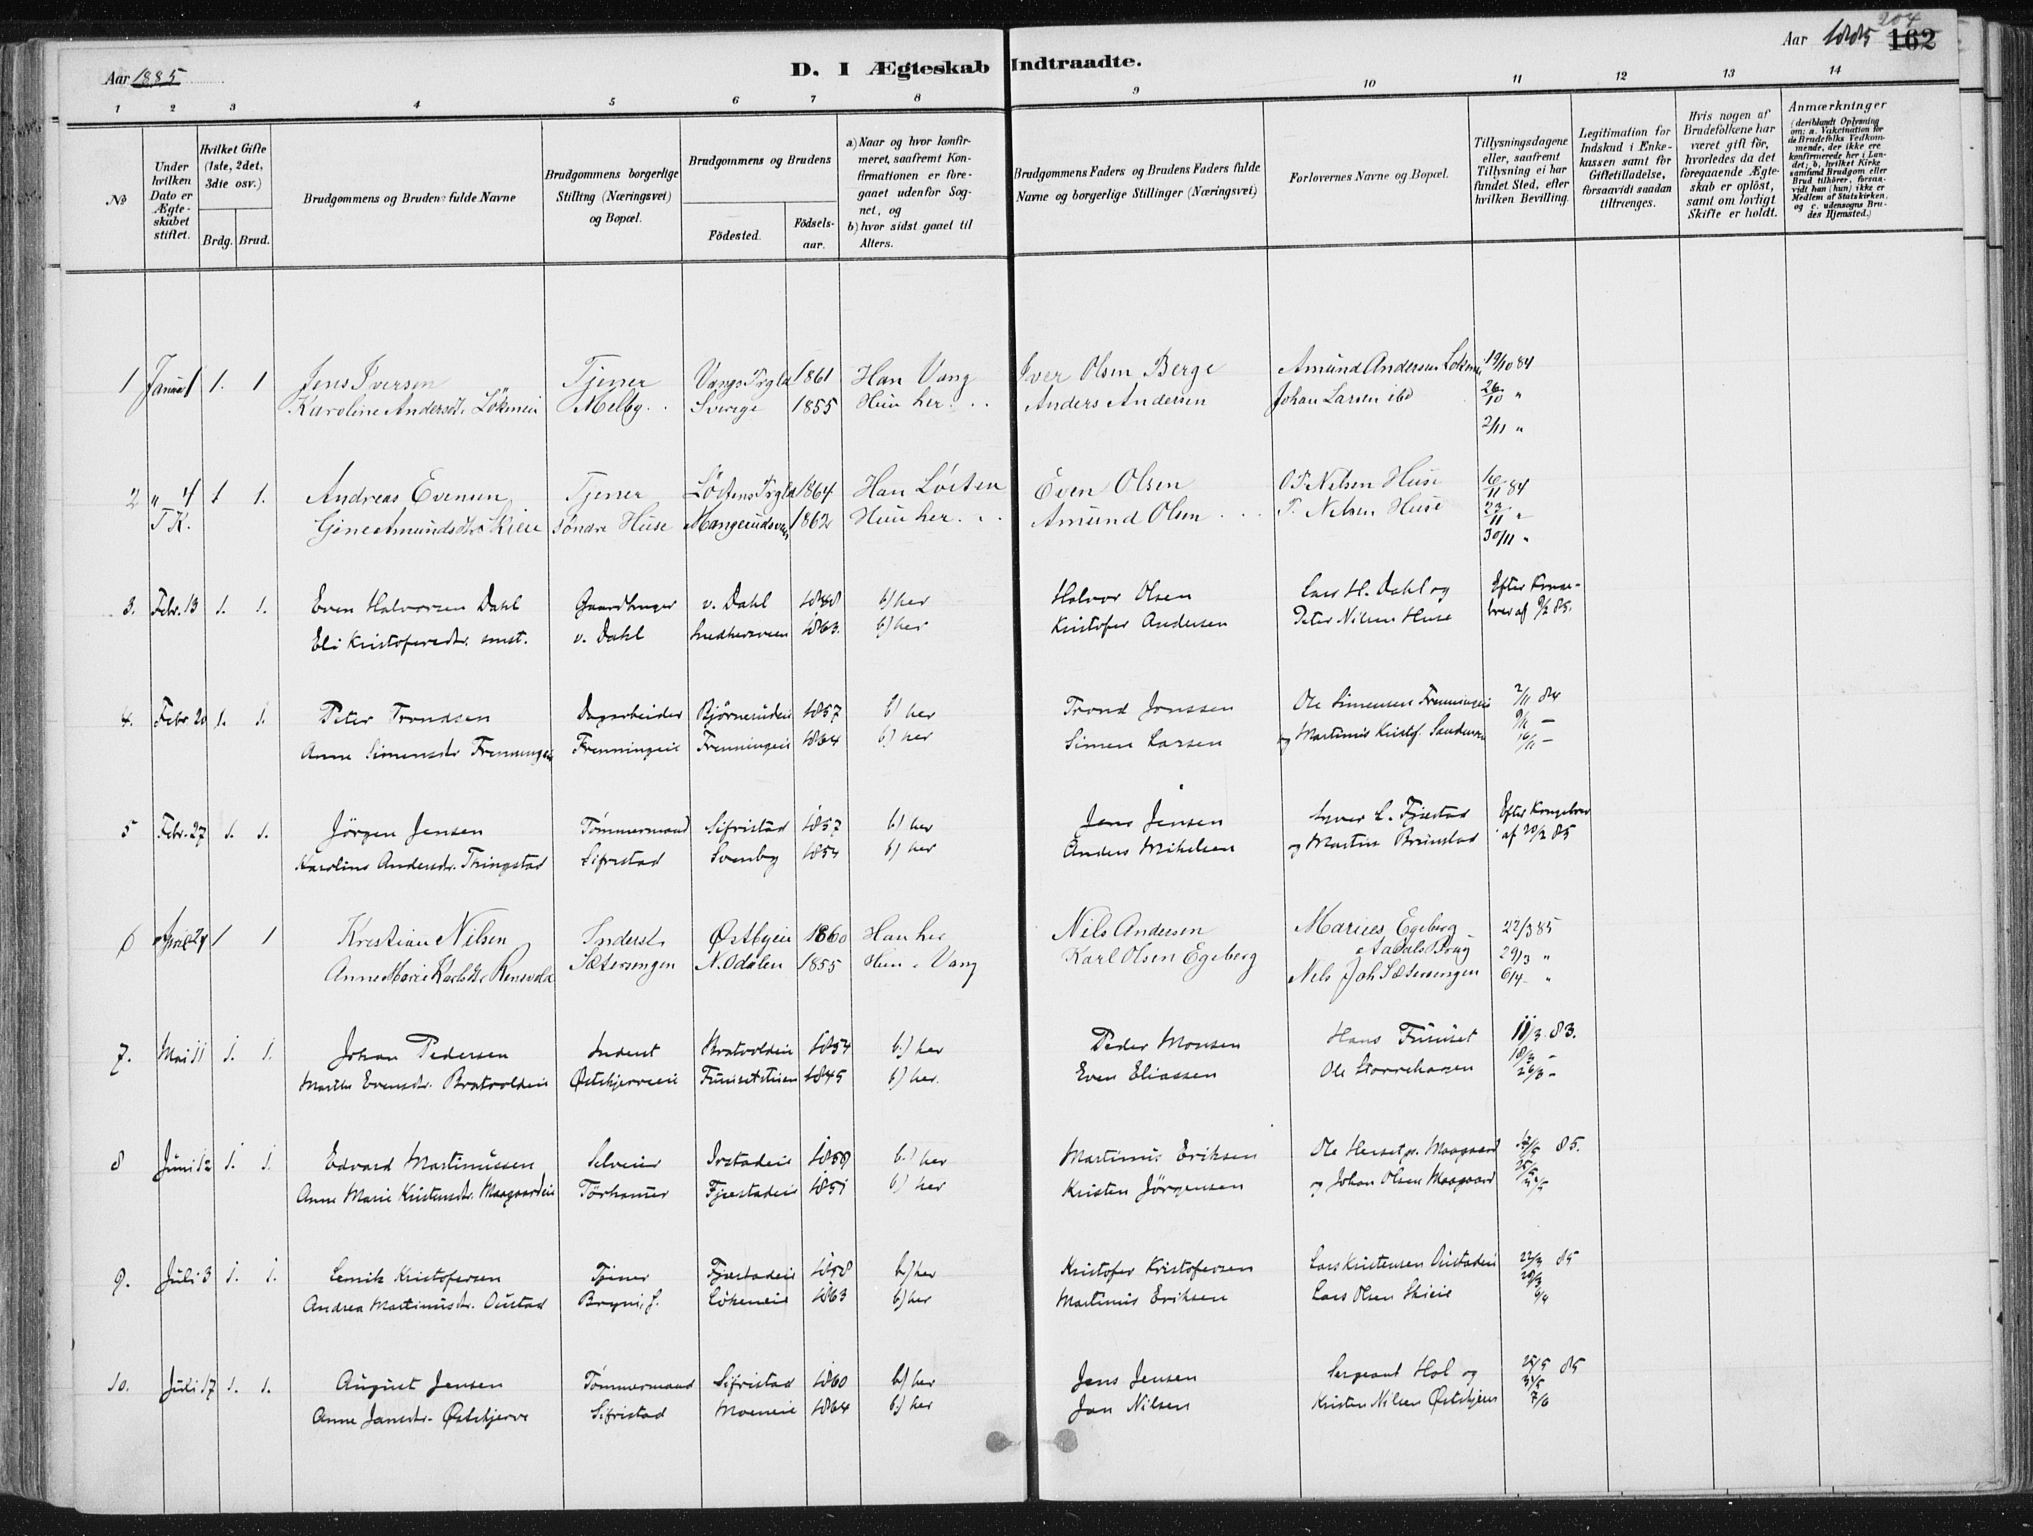 204
Aar 1885 162
Aar 1885
D. I Ægteskab Indtraadte.
1 2 3 4 5 6 7 8 9 10 11 12 13 14
№
Under hvilken Dato er Ægte-skabet stiftet.
Hvilket Gifte (1ste, 2det, 3die osv.)
Brdg. Brud.
Brudgommens og Brudens fulde Navne
Brudgommens borgerlige Stilling (Næringsvei) og Bopæl.
Brudgommens og Brudens
Födested. Födsels-aar.
a) Naar og hvor konfir-meret, saafremt Kon-firmationen er fore-gaaet udenfor Sog-net, og
b) hvor sidst gaaet til Alters.
Brudgommens Faders og Brudens Faders fulde Navne og borgerlige Stillinger (Næringsvei)
Forlovernes Navne og Bopæl.
Tillysningsdagene eller, saafremt Tillysning ei har fundet Sted, efter hvilken Bevilling.
Legitimation for Indskud i Enke-kassen samt for Giftetilladelse, forsaavidt saadan tiltrænges.
Hvis nogen af Brudefolkene har været gift før, hvorledes da det foregaaende Ægte-skab er oplöst, samt om lovligt Skifte er holdt.
Anmærkninger
(deriblandt Oplysning om; a. Vakcination for de Brudefolks Vedkom-mende, der ikke ere konfirmerede her i Lan-det; b. hvilket Kirke samfund Brudgom eller Brud tilhörer, forsaa-vidt han (hun) ikke er Medlem af Statskirken, og c. udensogns Bru-des Hjemsted.)
1 Januar 1 1. 1 Jens Iversen Tjener Vangs Prgld 1861 Han Vang Iver Olsen Berge Amund Andersen Lökenei 19/10 84
Karoline Andersdt. Lökenei Melby Sverige 1855 Hun her. Anders Andersen Johan Larsen ibd 26/10 "
2/11 "
2 " 4 1 1. Andreas Evensen Tjener Löitens Prgld 1864 Han Löiten Even Olsen O. P. Nilsen Huse 16/11 84
T. K. Gine Amundsdtr Skieie söndre Huse Mangerudsvea 1862 Hun her. Amund Olsen P. Nilsen Huse 23/11 "
30/11 "
3. Febr. 13 1. 1. Even Halvorsen Dahl Gaardbruger v. Dahl 1848 b) her Halvor Olsen Lars H. Dahl og Efter Konge-
Eli Kristofersdtr. smst. v. Dahl 1863. b) her Kristofer Andersen Peter Nilsen Huse brev af 9/2 85.
4. Febr 20 1. 1. Peter Trondsen Dagarbeider Björnerudeie 1857 b) her Trond Jonssen Ole Simensen Frenningeie 2/11 84
Anne Simensdtr Frenningeie Frenningeie Frenningeie 1864 b) her Simen Larsen og Martinus Kristof. Sandersen 9/11 —
16/11 —
5 Febr. 27 1. 1. Jörgen Jensen Tömmermand Sifristad 1857 b) her Jens Jensen Syver L. Fjæstad Efter Kongebrev
Karoline Andersdtr. Thingstad Sifristad Svenby 1854 b) her Anders Mikelsen og Martin Brunstad af 20/2 85
6 April 24 1 1 Kristian Nilsen Inderst Østbyeie 1860 Han her Nils Andersen Marius Egeberg 22/3 85
Anne Marie Karlsdtr Rensvold Sætersengen N. Odalen 1855 Hun " Vang Karl Olsen Egeberg Aadals Brug 29/3 "
Nils Joh Sætersengen 6/4 "
7. Mai 11 1. 1. Johan Pedersen Inderst Bratvoldeie 1854 b.) her Peder Monsen Hans Furuset 11/3 83.
Marthe Evensdtr. Bratvoldeie Östskjerveeie Furusetstuen 1845 b) her. Even Eliassen Ole Storrehagen 18/3 —
26/3 —
8 Juni 12 1. 1. Edvard Martinussen Selveier Irstadeie 1859 b.) her Martinus Eriksen Ole Herset pr. Maagaard 85.
Anne Marie Kristensdtr. Maagaardeie Törhauer Fjæstadeie 1851 b) her Kristen Jörgensen og Johan Olsen Maagaard 25/5
9. Juli 3 1. 1. Lemik Kristofersen Tjener Fjæstadeie 1858 b.) her Kristofer Kristofersen Lars Kristensen Oustadeie 22/3 85
Andrea Martinusdtr. Oustad Bryni, s. Lökeneie 1863 b) her Martinus Eriksen Lars Olsen Skieie
10. Juli 17 1. 1. August Jensen Tömmermand Sifristad 1860 b.) her Jens Jensen Sergeant Hol og 25/5 85
Anne Jansdtr. Östskjerve Sifristad Moeneie 1864 b.) her Jan Nilsen Kristen Nilsen Östskjerve 31/5
7/6